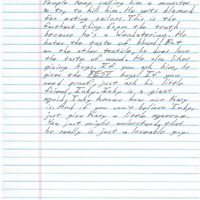 People keep calling him a monster,
& try to kill him. He gets blamed
for eating sailors. This is the
farthest thing from the truth
because he's a Woodatarian. He
hates the taste of blood! But
on the other tentacle, he does love
the taste of wood. He also likes
giving hugs. If you ask him, he
gives the BEST hugs! If you
need proof, just ask his little
friend, Inky. Inky is a giant
squid, Inky knows how our Kary
is. And if you won't believe Inky,
just give Kary a little squeeze.
You just might understand, that
he really is just a loveable guy.